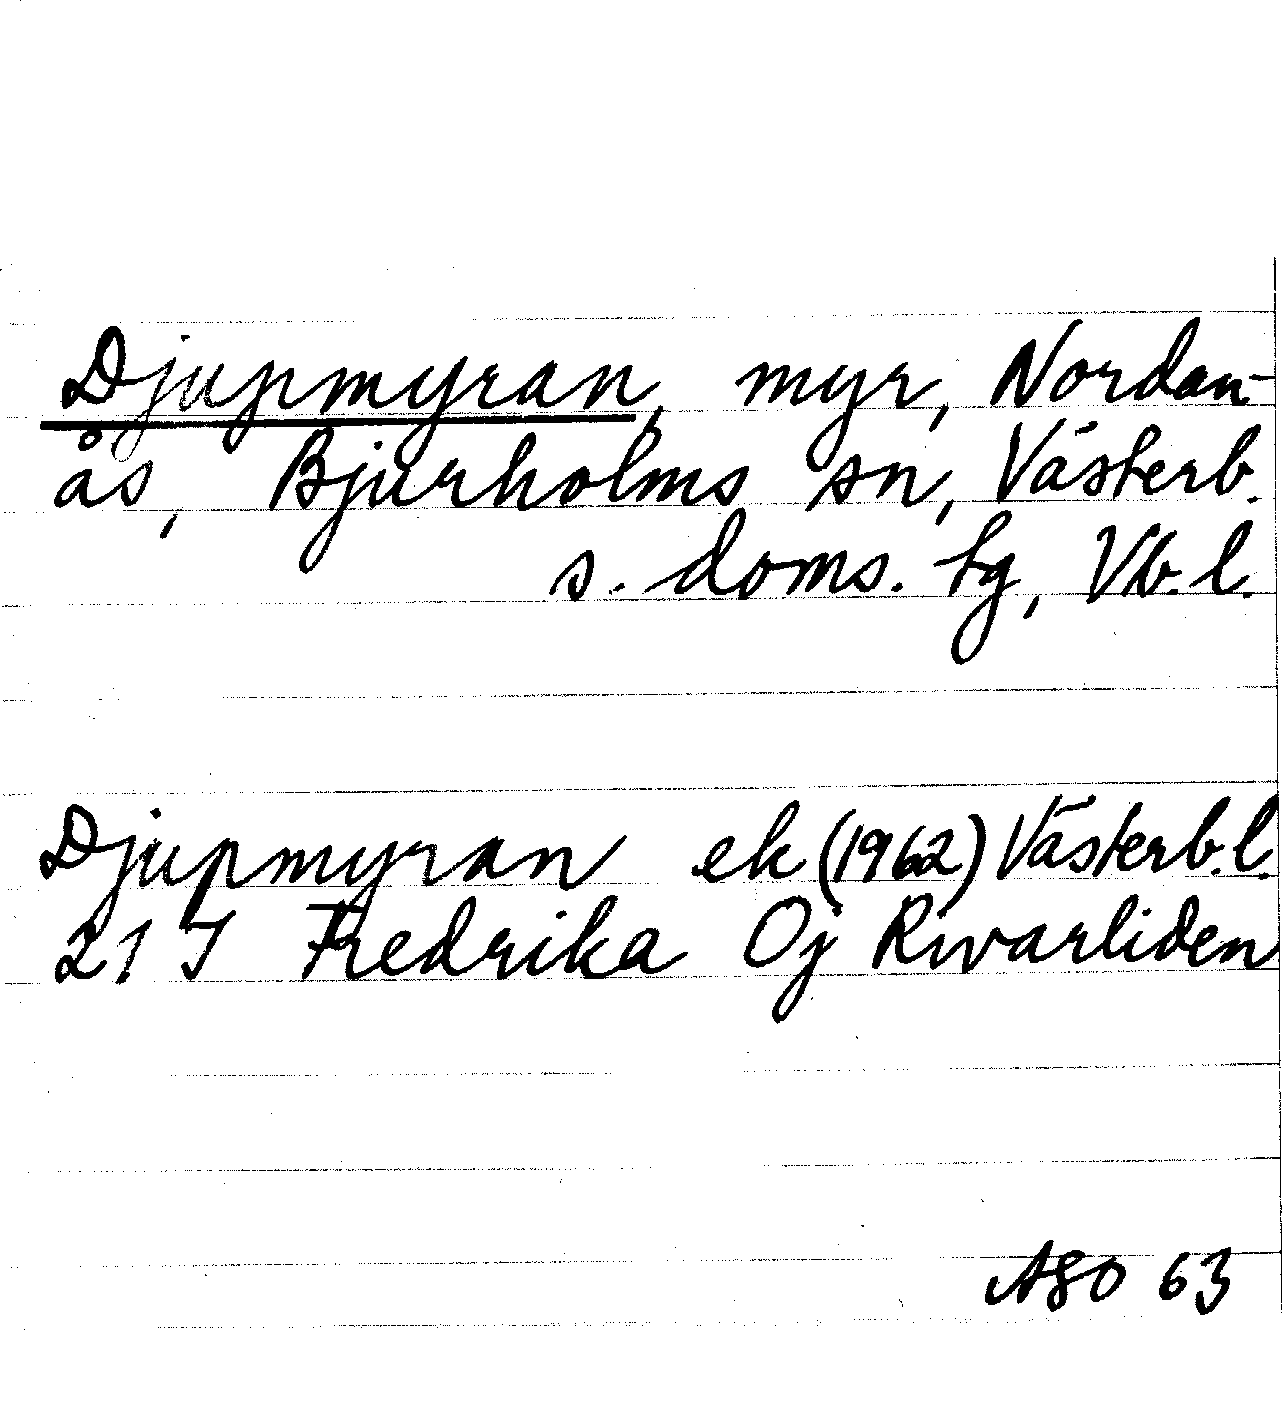 Djupmyran, myr, Nordan-
ås, Bjurholms sn, Västerb.
s. doms. tg, Vb. l.
Djupmyran ek (1962) Västerb. l.
21 J Fredrika Oj Rivarliden
ASO 63